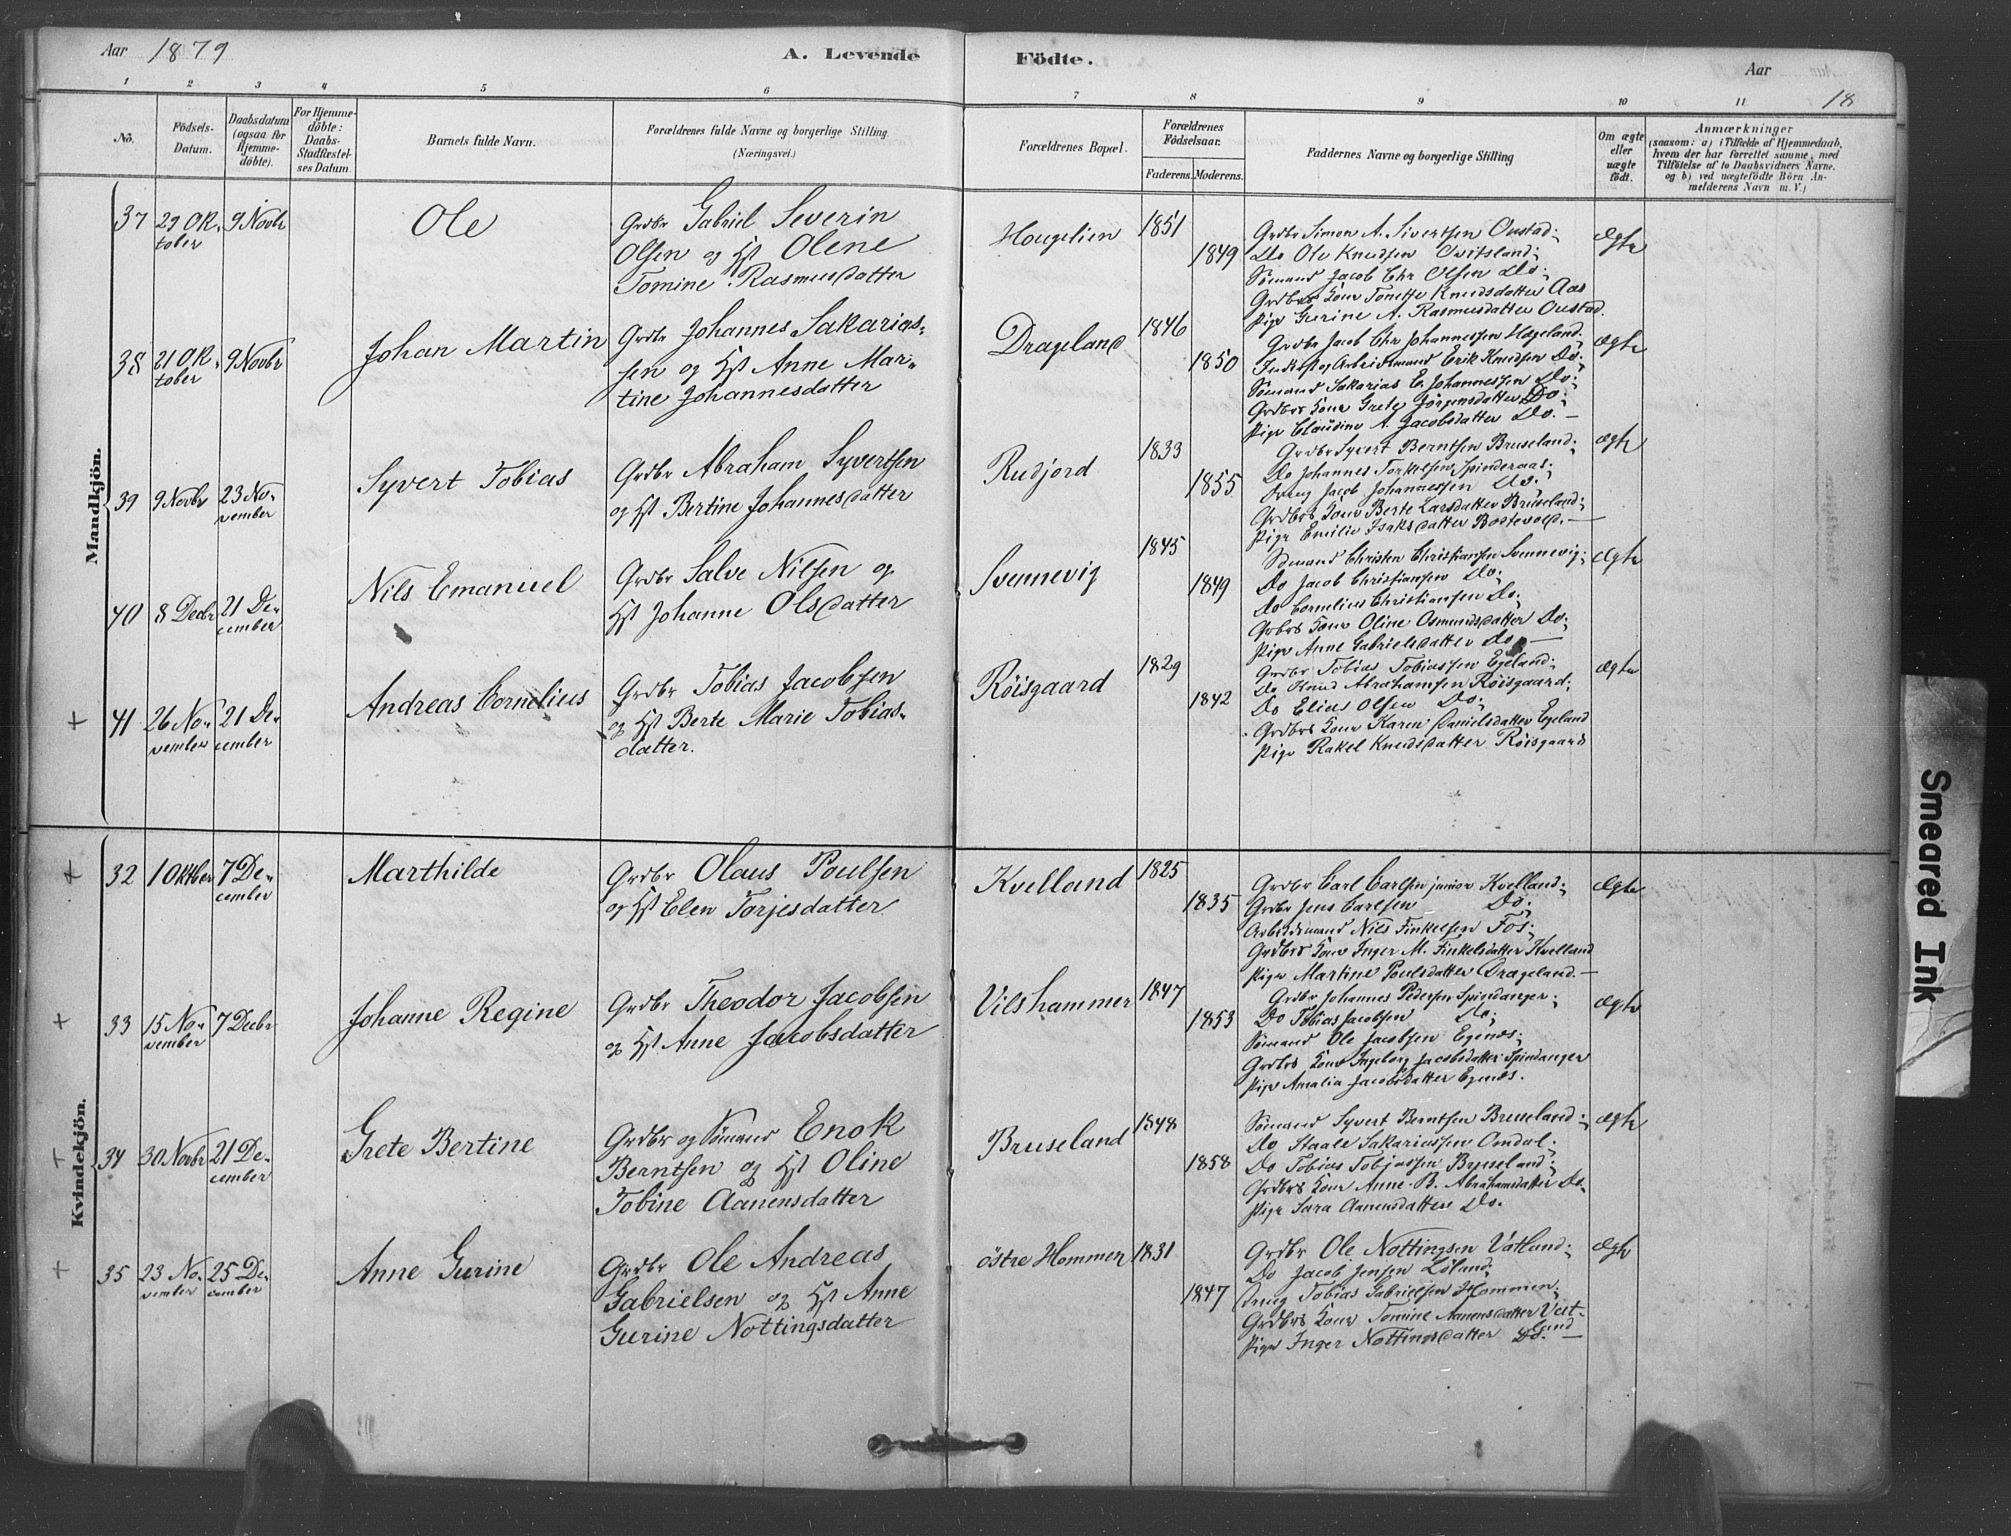 Aar 1879
A. Levende
Födte.
Aar
18
1 2 3 4 5 6 7 8 9 10 11
No.
Födsels-
Datum.
Daabsdatum
(ogsaa for
Hjemme-
döbte).
For Hjemme-
döbte:
Daabs-
Stadfæstel-
ses Datum
Barnets fulde Navn.
Forældrenes fulde Navne og borgerlige Stilling
(Næringsvei.)
Forældrenes Bopæl.
Forældrenes
Födselsaar.
Faderens. Moderens.
Faddernes Navne og borgerlige Stilling
Om ægte
eller
uægte
født.
Anmærkninger
(saasom: a) i Tilfælde af Hjemmedaab,
hvem der har forrettet samme, med
Tilföielse af to Daabsvidners Navne,
og b) ved uægtefödte Börn An-
melderens Navn m. V.)
Mandkjön.
37
29 Ok-
tober
9 Novbr
Ole
Grdbr Gabriel Severin
Olsen og Hst Olene
Tomine Rasmusdatter
Hougelien
1851
1849
Grdbr Simon A. Sivertsen Oustad;
Do Ole Knudsen Qvitsland;
Sømand Jacob Chr Olsen Do;
Grdbrs Kone Tonette Knudsdatter Aas
Pige Gurine A. Rasmusdatter Oustad.
Ægte
38
21 Ok-
tober
9 Novbr
Johan Martin
Grdbr Johannes Sakarias-
sen og Hst Anne Mar-
tine Johannesdatter
Drageland
1846
1850
Grdbr Jacob Chr Johannessen Hægeland.
Erik Knudsen Do;
Sømand Sakarias E. Johannessen Do;
Grdbrs Kone Grete Jörgensdatter Do;
Pige Claudine A. Jacobsdatter Do. —
Ægte
39
9 Novbr
23 No-
vember
Syvert Tobias
Grdbr Abraham Syvertsen
og Hst Bertine Johannesdatter
Rudjord
1833
1855
Grdbr Syvert Berntsen Bruseland;
Do Johannes Torkelsen Spinderaas;
Jacob Johannessen Do;
Grdbrs Kone Berte Larsdatter Bruseland;
Pige Emilie Isaksdatter. —
Ægte
40
8 Decbr
21 De-
cember
Nils Emanuel
Grdbr Salve Nilsen og
Hst Johanne Olsdatter
Svennevig
1845
1849
Sömand Christen Christiansen Svennevig;
Do Jacob Christiansen Do;
Do Cornelius Christiansen Do;
Grdbrs Kone Oline Osmundsdatter Do;
Pige Anne Gabrielsdatter Do —
Ægte
+
41
26 No-
vember
21 De-
cember
Andreas Cornelius
Grdbr Tobias Jacobsen
og Hst Berte Marie Tobias-
datter.
Röisgaard
1829
1842
Grdbr Tobias Tobiassen Egeland;
Do Knud Abrahamsen Röisgaard;
Do Elias Olsen Do;
Grdbrs Kone Karen Danielsdatter Egeland
Pige Rakel Knudsdatter Röisgaard
Ægte
Kvindekjön.
+
32
1 Oktber
7 De-
cember
Marthilde
Grdbr Olaus Poulsen
og Hst Elen Torjesdatter
Kvelland
1825
1835
Grdbr Carl Carlsen junior Kvelland;
Grdbr Jens Carlsen Do;
Arbeidsmand Nils Finkelsen Fos;
Grdbrs Kone Inger M. Finkelsdatter Kvelland
Pige Martine Poulsdatter Drageland. —
Ægte
+
33
15 No-
vember
7 Decbr
Johanne Regine
Grdbr Theodor Jacobsen
og Hst Anne Jacobsdatter
Vilshammer
1847
1853
Grdbr Johannes Pedersen Spindanger;
Do Tobias Jacobsen Do;
Sømand Ole Jacobsen Egenes;
Grdbrs Kone Ingeborg Jacobsdatter Spindanger
Pige Amalia Jacobsdatter Egenes.
Ægte
+
34
30 Novbr
21 De-
cember
Grete Bertine
Grdbr og Sømand Enok
Berntsen og Hst Oline
Tobine Aanensdatter
Bruseland
1848
1858
Sømand Syvert Berntsen Bruseland;
Do Staale Sakariassen Omdal;
Do Tobias Tobiassen Bruseland;
Grdbrs Kone Anne B. Abrahamsdatter Do.
Pige Sara Aanensdatter Do.
Ægte
+
35
23 No-
vember
25 De-
cember
Anne Gurine
Grdbr Ole Andreas
Gabrielsen og Hst Anne
Gurine Nottingsdatter
östre Hommen
1831
1847
Grdbr Ole Nottingsen Vatland;
Do Jacob Jensen Löland;
Tobias Gabrielsen Hommen;
Grdbrs Kone Tomine Aanensdatter Vat-
land
Pige Inger Nottingsdatter Do. —
Ægte
Smeared Ink